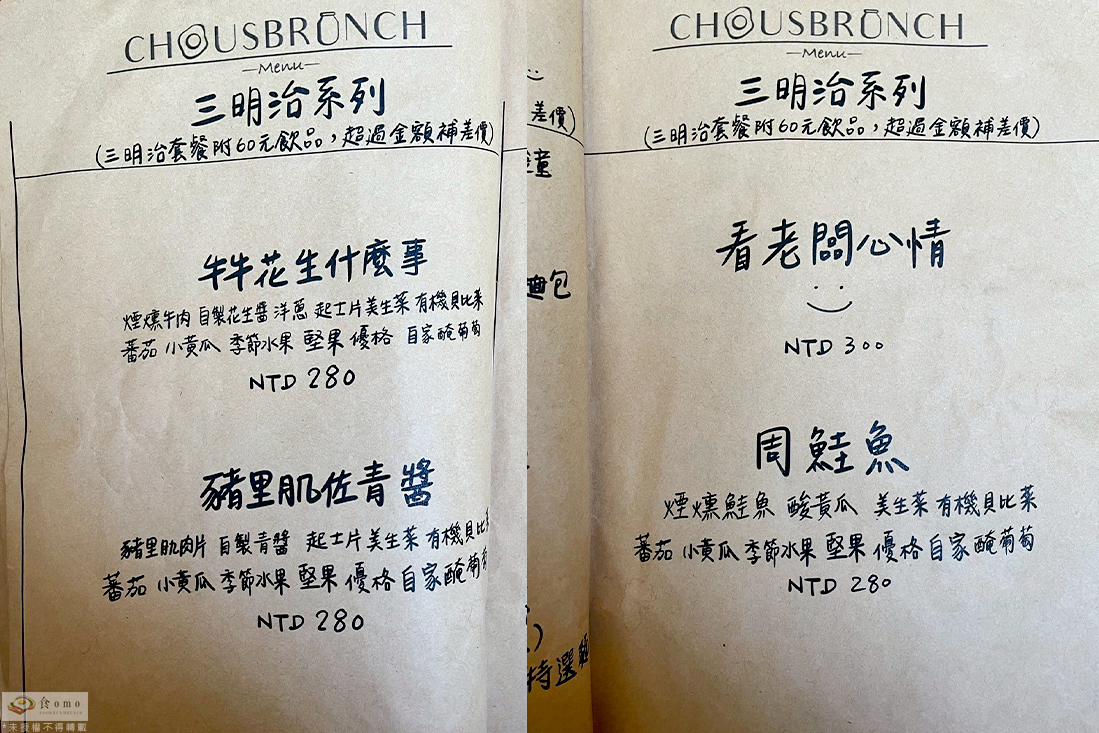 CHOUSBRUNCH
Menu
三明治系列
(三明治套餐附60元飲品，超過金額補差價)
牛牛花生什麼事
煙燻牛肉 自製花生醬 洋蔥 起士片 美生菜 有機貝比菜
蕃茄 小黃瓜 季節水果 堅果 優格 自家醃葡萄
NTD 280
豬里肌佐青醬
豬里肌肉片 自製青醬 起士片 美生菜 有機貝比
蕃茄 小黃瓜 季節水果 堅果 優格 自家醃葡萄
NTD 280
食omo
*未授權不得轉載
差價)
包
特選
CHOUSBRUNCH
Menu
三明治系列
(三明治套餐附60元飲品，超過金額補差價)
看老闆心情
NTD 300
周鮭魚
煙燻鮭魚 酸黃瓜 美生菜 有機貝比菜
蕃茄 小黃瓜 季節水果 堅果 優格 自家醃葡萄
NTD 280